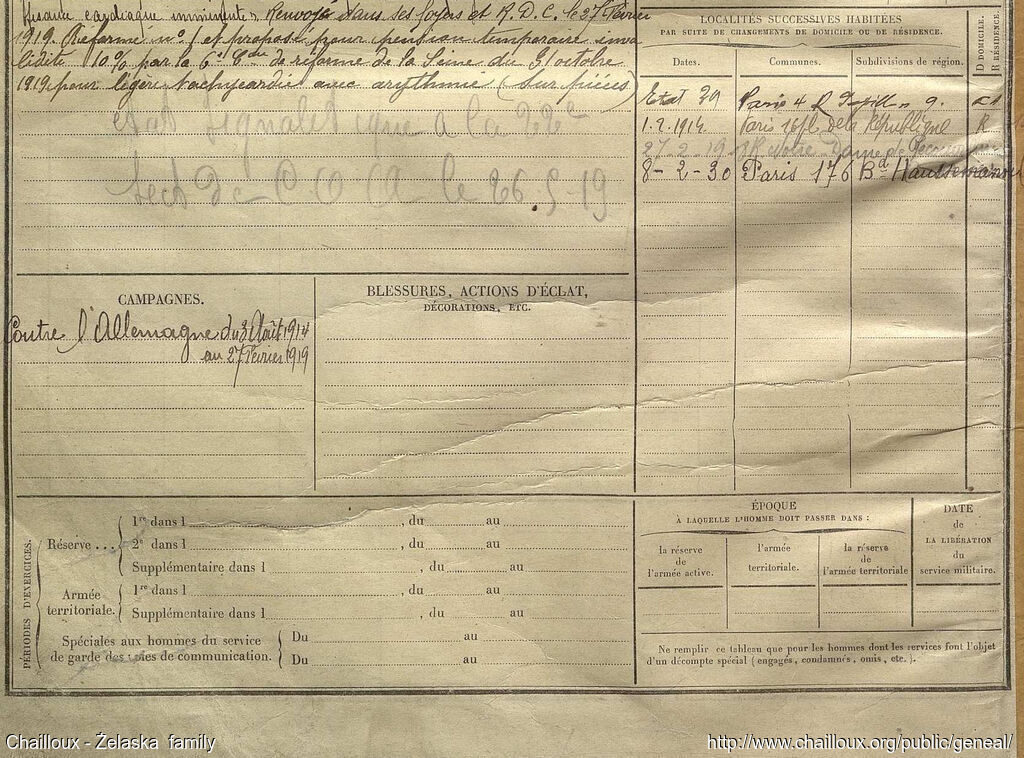 cardiaque imminente ". Renvoyé dans ses foyers et R. D. C. le 27 Février
1919. Réformé no. 1 et proposé pour pension temporaire inva
lidité 10 % par la 6e Con de réforme de la Seine du 31 octobre
1919 pour légère tachycardie avec arythmie (Sur pièces)
etat signaletique à la 22e
Sect de C O A le 26 5 19
LOCALITÉS SUCCESSIVES HABITÉES
PAR SUITE DE CHANGEMENTS DE DOMICILE OU DE RÉSIDENCE.
Dates. Communes. Subdivisions de région.
D DOMICILE.
R RÉSIDENCE.
Paris 4 R 9.
1.2.1914. Paris 16 pl. de la République R
27.2.19 R Notre Dame de
8-2-30 Paris 176 Bd Haussmann
CAMPAGNES.
Contre l'Allemagne du 3 Août 1914
au 27 Février 1919
BLESSURES, ACTIONS D'ÉCLAT,
DÉCORATIONS, ETC.
PÉRIODES D'EXERCICES.
Réserve ...
1re dans l , du au
2e dans l , du au
Supplémentaire dans l , du au
Armée
territoriale.
1re dans l , du au
Supplémentaire dans l , du au
Spéciales aux hommes du service
de garde des voies de communication.
Du au
Du au
ÉPOQUE
À LAQUELLE L'HOMME DOIT PASSER DANS :
la réserve
de
l'armée active.
l'armée
territoriale.
la réserve
de
l'armée territoriale
DATE
de
LA LIBÉRATION
du
service militaire.
Ne remplir ce tableau que pour les hommes dont les services font l'objet
d'un décompte spécial (engagés, condamnés, omis, etc.).
Chailloux - Želaska family
http://www.chailloux.org/public/geneal/